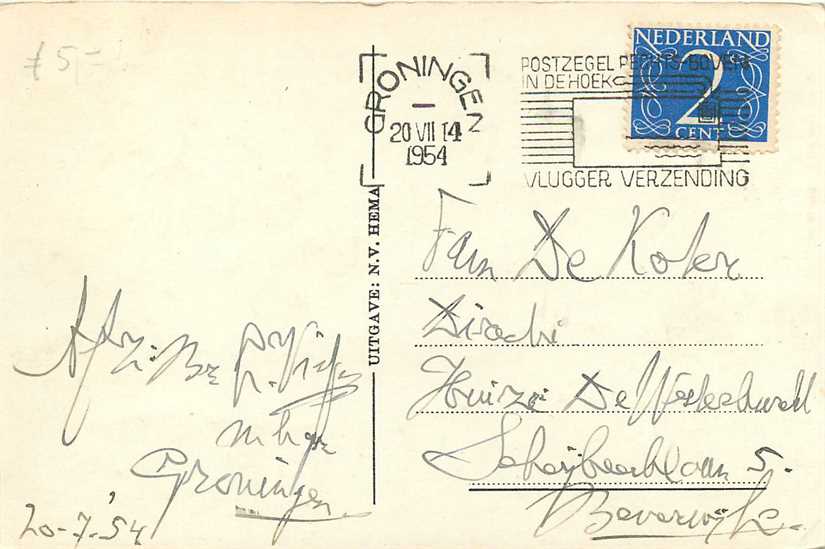 £ 5,-
GRONINGEN
20 VII 14
1954
POSTZEGEL RECHTS-BOVEN
IN DE HOEK
VLUGGER VERZENDING
NEDERLAND
2
CENT
UITGAVE: N.V. HEMA
Fam De Koter
Huize De
5.
Beverwijk
Afz:
Groningen
20-7-'54